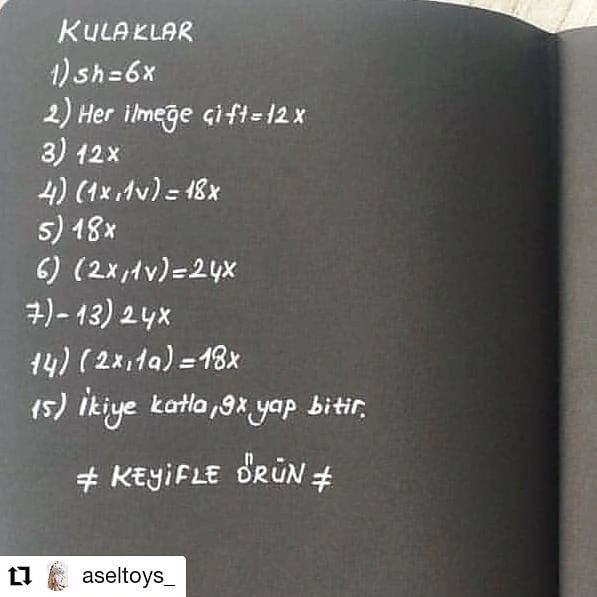 KULAKLAR
1) sh=6x
2) Her ilmeğe çift=12x
3) 12x
4) (1x,1v)=18x
5) 18x
6) (2x,1v)=24x
7)-13) 24x
14) (2x,1a)=18x
15) İkiye katla,9x yap bitir.
≠ KEYİFLE ÖRÜN ≠
aseltoys_